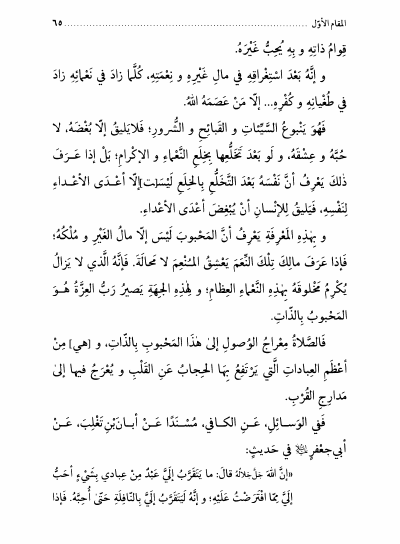 المقام الأوّل ........................................................ ٦٥
قِوامُ ذاتِهِ و بِهِ يُحِبُّ غَيْرَهُ.
و إنَّهُ بَعْدَ اسْتِغْراقِهِ في مالِ غَيْرِهِ و نِعْمَتِهِ، كُلَّما زادَ في نَعْمائِهِ زادَ
في طُغْيانِهِ و كُفْرِهِ... إلّا مَنْ عَصَمَهُ اللهُ.
فَهُوَ يَنْبوعُ السَّيِّئاتِ و القَبائِحِ و الشُّرورِ؛ فَلايَليقُ إلّا بُغْضَهُ، لا
حُبَّهُ و عِشْقَهُ، و لَو بَعْدَ تَخَلُّعِها بِخِلَعِ النَّعْماءِ و الإكْرامِ؛ بَلْ إذا عَرَفَ
ذلكَ يَعْرِفُ أنَّ نَفْسَهُ بَعْدَ التَّخَلُّعِ بِالخِلَعِ لَيْسَ[ت] إلّا أعْدَى الأعْداءِ
لِنَفْسِهِ، فَيَليقُ لِلإنْسانِ أنْ يُبْغِضَ أعْدَى الأعْداءِ.
و بِهذِهِ المَعْرِفَةِ يَعْرِفُ أنَّ المَحْبوبَ لَيْسَ إلّا مالُ الغَيْرِ و مُلْكُهُ؛
فَإذا عَرَفَ مالِكَ تِلْكَ النِّعَمَ يَعْشِقُ المُنْعِمَ لا مَحالَةَ. فَإنَّهُ الَّذي لا يَزالُ
يُكْرِمُ مَخْلوقَهُ بِهذِهِ النَّعْماءِ العِظامِ؛ و لِهذِهِ الجِهَةِ يَصيرُ رَبُّ العِزَّةُ هُوَ
المَحْبوبُ بِالذّاتِ.
فَالصَّلاةُ مِعْراجُ الوُصولِ إلى هٰذا المَحْبوبِ بِالذّاتِ، و [هي] مِنْ
أعْظَمِ العِباداتِ الَّتي يَرْتَفِعُ بِهَا الحِجابُ عَنِ القَلْبِ و يُعْرَجُ فيها إلى
مَدارِجِ القُرْبِ.
فَفي الوَسائِلِ، عَنِ الكافي، مُسْنَدًا عَنْ أبانَ‌بْنِ تَغْلِبَ، عَنْ
أبي‌جعْفرٍ في حَديثٍ:
«إنَّ اللهَ جَلَّ‌جَلالُهُ قالَ: ما يَتَقَرَّبُ إلَيَّ عَبْدٌ مِنْ عِبادي بِشَيْءٍ أحَبُّ
إلَيَّ مِمّا افْتَرَضْتُ عَلَيْهِ؛ و إنَّهُ لَيَتَقَرَّبُ إلَيَّ بِالنّافِلَةِ حَتّى أُحِبَّهُ. فَإذا